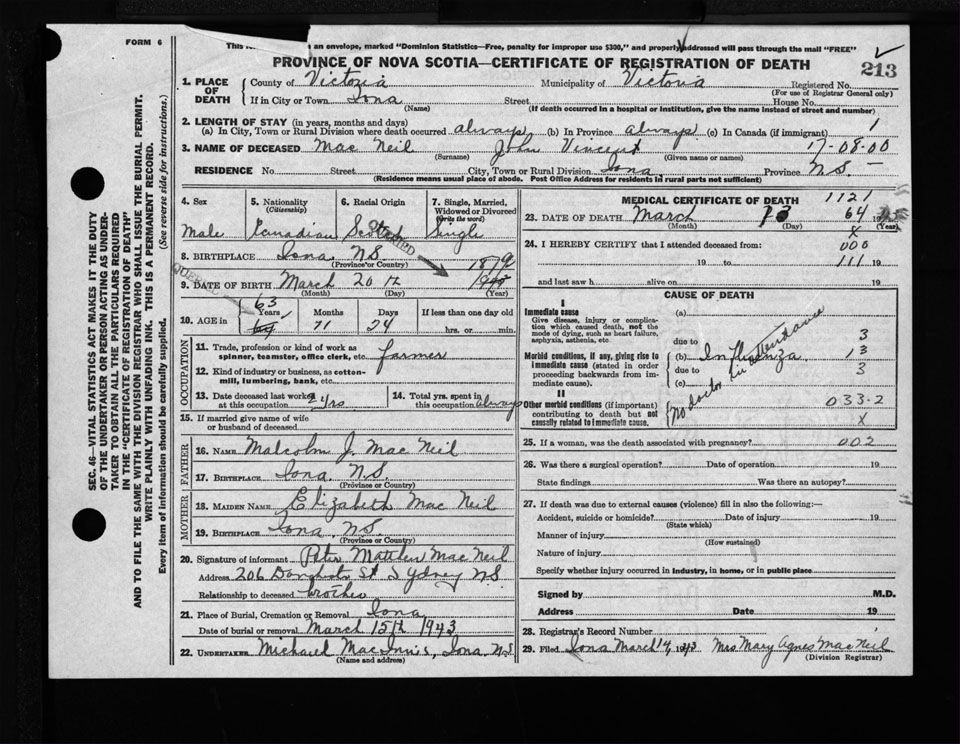 FORM 6
This an envelope, marked "Dominion Statistics—Free, penalty for improper use $300," and properly addressed will pass through the mail "FREE"
PROVINCE OF NOVA SCOTIA—CERTIFICATE OF REGISTRATION OF DEATH
213
SEC. 46—VITAL STATISTICS ACT MAKES IT THE DUTY
OF THE UNDERTAKER OR PERSON ACTING AS UNDER-
TAKER TO OBTAIN ALL THE PARTICULARS REQUIRED
IN THE "CERTIFICATE OF REGISTRATION OF DEATH"
AND TO FILE THE SAME WITH THE DIVISION REGISTRAR WHO SHALL ISSUE THE BURIAL PERMIT.
WRITE PLAINLY WITH UNFADING INK. THIS IS A PERMANENT RECORD.
Every item of information should be carefully supplied. (See reverse side for instructions.)
1. PLACE OF DEATH County of Victoria Municipality of Victoria Registered No.
(For use of Registrar General only)
If in City or Town Iona Street House No.
(Name) (If death occurred in a hospital or institution, give the name instead of street and number)
2. LENGTH OF STAY (in years, months and days) 1
(a) In City, Town or Rural Division where death occurred always (b) In Province always (c) In Canada (if immigrant)
3. NAME OF DECEASED Mac Neil John Vincent 17-08-00
(Surname) (Given name or names)
RESIDENCE No. Street City, Town or Rural Division Iona Province N.S.
(Residence means usual place of abode. Post Office Address for residents in rural parts not sufficient)
4. Sex Male
5. Nationality (Citizenship) Canadian
6. Racial Origin Scotch
7. Single, Married, Widowed or Divorced (Write the word) Single
8. BIRTHPLACE Iona N.S.
(Province or Country)
QUERIED
9. DATE OF BIRTH March 20 th 1879
(Month) (Day) (Year)
QUERIED
10. AGE in 63 Years 11 Months 24 Days If less than one day old hrs. or min.
OCCUPATION
11. Trade, profession or kind of work as
spinner, teamster, office clerk, etc. farmer
12. Kind of industry or business, as cotton-
mill, lumbering, bank, etc.
13. Date deceased last worked at this occupation 2 yrs
14. Total yrs. spent in this occupation always
15. If married give name of wife
or husband of deceased
FATHER
16. NAME Malcolm J. Mac Neil
17. BIRTHPLACE Iona N.S.
(Province or Country)
MOTHER
18. MAIDEN NAME Elizabeth Mac Neil
19. BIRTHPLACE Iona, N.S.
(Province or Country)
20. Signature of informant Peter Matthew Mac Neil
Address 206 St Sydney N.S.
Relationship to deceased brother
21. Place of Burial, Cremation or Removal Iona
Date of burial or removal March 15th 1943
22. UNDERTAKER Michael MacInnis, Iona N.S
(Name and address)
MEDICAL CERTIFICATE OF DEATH 1121
23. DATE OF DEATH March 13 64 19
(Month) (Day) (Year)
X
24. I HEREBY CERTIFY that I attended deceased from: 000
19 to 111 19
and last saw h alive on 19
CAUSE OF DEATH
I
Immediate cause (a)
Give disease, injury or complica-
tion which caused death, not the
mode of dying, such as heart failure,
asphyxia, asthenia, etc.
due to 3
Morbid conditions, if any, giving rise to
immediate cause (stated in order
proceeding backwards from im-
mediate cause).
(b) Influenza 13
due to 3
(c)
No doctor in attendance
II
Other morbid conditions (if important)
contributing to death but not
causally related to immediate cause.
033-2
X
25. If a woman, was the death associated with pregnancy? 002
26. Was there a surgical operation? Date of operation 19
State findings Was there an autopsy?
27. If death was due to external causes (violence) fill in also the following:
Accident, suicide or homicide? Date of injury 19
(State which)
Manner of injury
(How sustained)
Nature of injury
Specify whether injury occurred in industry, in home, or in public place
Signed by M.D.
Address Date 19
28. Registrar's Record Number
29. Filed Iona March 14, 1943 Mrs Mary Agnes MacNeil
(Division Registrar)